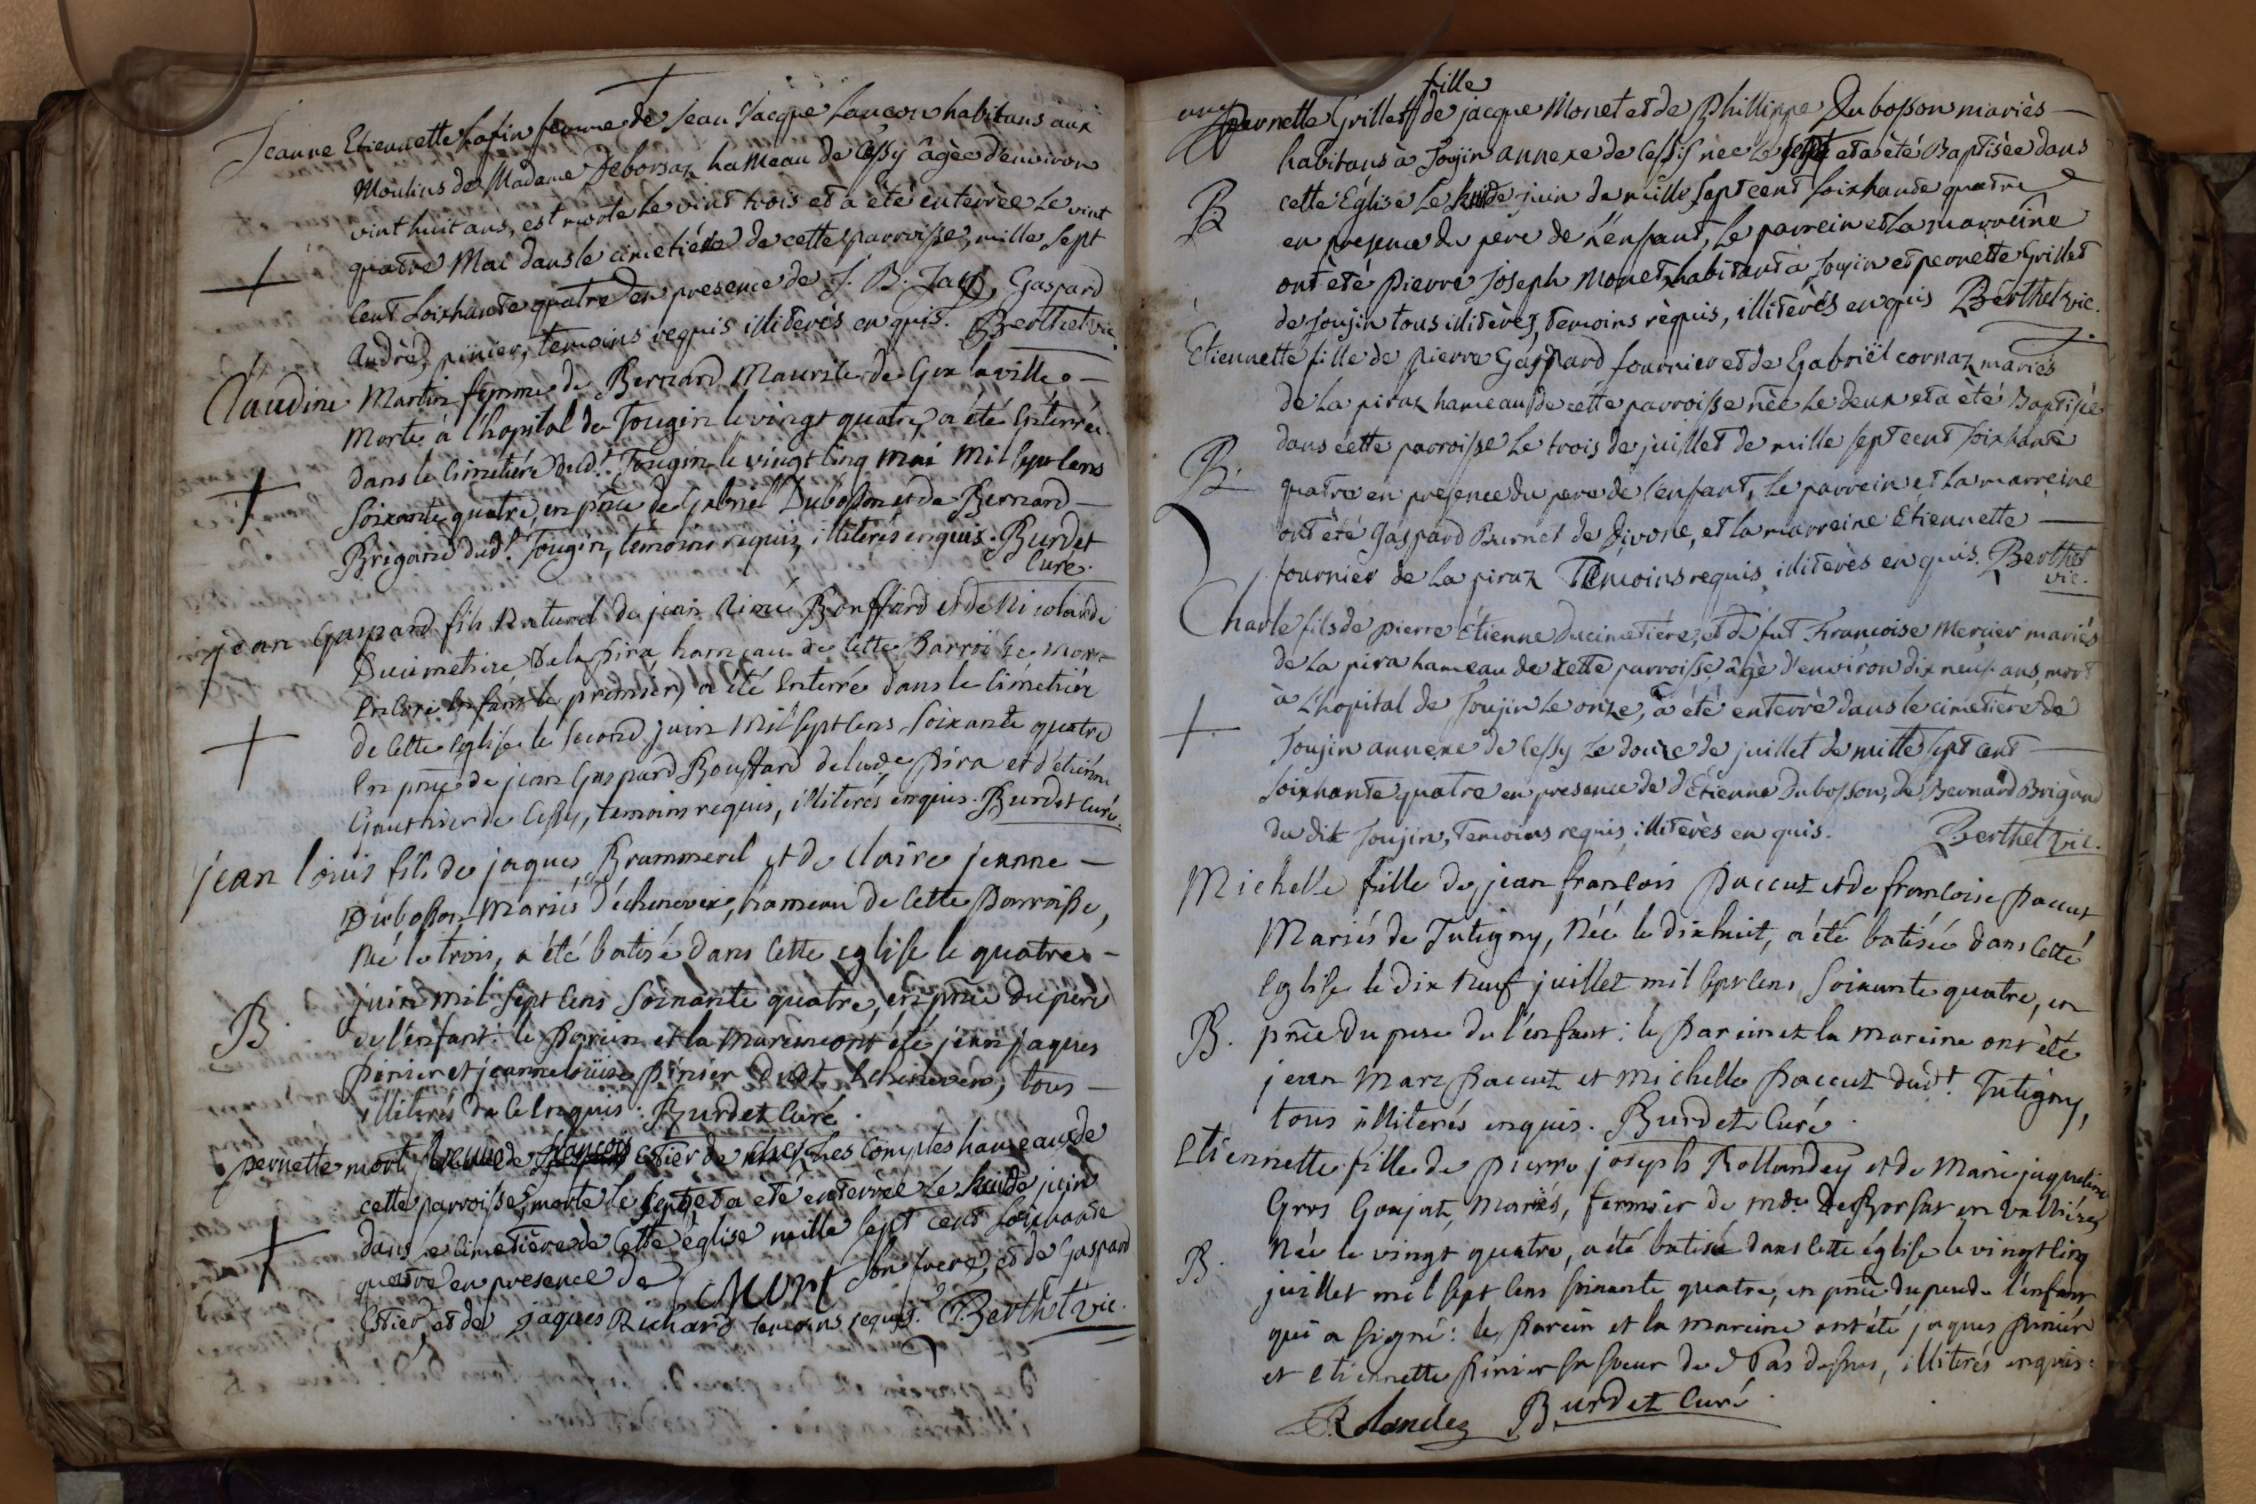 Jeanne Etiennette Lafin femme de Jean Jacque Lançon habitans aux
Moulins de Madame Deborsaz hameau de Cessy âgèe d'environ
vint huit ans, est morte le vint trois et a été enterrèe le vint
quatre Mai dans le cimetiére de cette parroisse, mille sept
Cent soixhante quatre en presence de J. B. Gaspard
André, pinier, temoins requis illiterés enquis. Berthet vic.
Claudine Martin femme de Bernard Maurise de Gex la ville —
Morte à l'hopital de Tougin le vingt quatre, a été Enterrée
dans le Cimetière dud.t Tougin le vingt Cinq mai Mil Sept Cens
Soixante quatre, en pñce de Gabriel Dubosson et de Bernard —
Brigand dud.t Tougin, temoins requis, illiterés enquis. Burdet
Curé.
jean Gaspard fils Naturel de jean Bouffard et de Nicolarde
Ducimetiere de la pira, hameau de Cette Parroisse mort
Encore Enfant le premier, a été Enterré dans le Cimetiére
de Cette Eglise le Second juin Mil Sept Cens Soixante quatre
En pñce de jean Gaspard Bouffard de lade Pira et d'étienne
Gauthier de Cessy, temoins requis, illiterés enquis. Burdet Curé.
jean louis fils de jaques Brammerel et de Claire jeanne —
Dubosson Mariés d'échenevex, hameau de Cette Parroisse,
Né le trois, a été batisé dans Cette eglise le quatre —
juin mil Sept Cens Soixante quatre, en pñce du pere
B. de l'enfant: le Parein et la Mareine ont été jean jaques
Perier et jeanne louise Pinier dudt Echenevex, tous —
illiterés de Ce Enquis. Burdet Curé.
pernette mort veuve de françois Estier de chez Les Comptes hameaux de
cette parroisse, morte le sept et a eté enterrèe Le huit de juin
dans le cimetière de Cette église mille sept cent soixhante
quatre en presence de C Mort son frere, et de Gaspard
Estier, et de jaques Richard temoins requis. Berthet vic.
fille
Pernette Grillet de jacque Monet et de Phillippe Dubosson mariès —
habitans à Toujin annexe de Cessis nèe Le sept et a été Baptisèe dans
B cette Eglise Le huit de juin de mille sept cent soixhante quatre
en presence du père de L'enfant, Le parrein et La marreine
ont èté Pierre Joseph Monet habitant à Toujin et pernètte Grillet
de Toujin tous illiterés, temoins rèquis, illiterés enquis Berthet vic.
Etiennette fille de pierre Gaspard fournier et de Gabriël cornaz mariés
de La piraz hameau de cétte parroisse nèe Le deux et a èté Baptisèe
dans cètte parroisse Le trois de juillet de mille sept cent soixhante
B. quatre en presence du pere de l'enfant, Le parrein et La marreine
ont été Gaspard Burnet de Divone, et la marreine Etiennette —
fournier de La piraz Témoins requis, illiterés enquis. Berthet
vic.
Charle fils de pierre Étienne Ducimetière, et de fut Francoise Mercier mariés
de La pira hameau de cette parroisse, âgè d'environ dix neuf ans, mort
à L'hopital de Toujin Le onze, a été enterrè dans le cimetiere de
Toujin annexe de Cessy Le douze de juillet de mille sept cent —
Soixhante quatre en presence de d'Etienne Dubosson, de Bernard Brigand
du dit Toujin, Temoins requis, illiterès enquis. Berthet vic.
Michelle fille de jean françois Paccut et de françoise Paccut
Mariés de Tutigny, Née le dixhuit, a été batisée dans Cette
Eglise le dix neuf juillet mil Sept Cens Soixante quatre, en
B. pñce du pere de l'enfant: le Parein et la Mareine ont èté
jean Marc Paccut et Michelle Paccut dud.t Tutigny,
tous illiterés enquis. Burdet Curé.
Etiennette fille de pierre joseph Rollandey et de Marie jaqueline
Gros Goujat, Mariés, fermier de Mde DeBorsat en Valliére,
B. Née le vingt quatre, a été batisée dans Cette église le vingt Cinq
juillet mil Sept Cens Soixante quatre, en pñce du pere de l'enfant
qui a Signé: le Parein et la Mareine ont été jaques Pinier
et Etiennette Pinier Sa Soeur de illiterés enquis.
Rolandez Burdet Curé